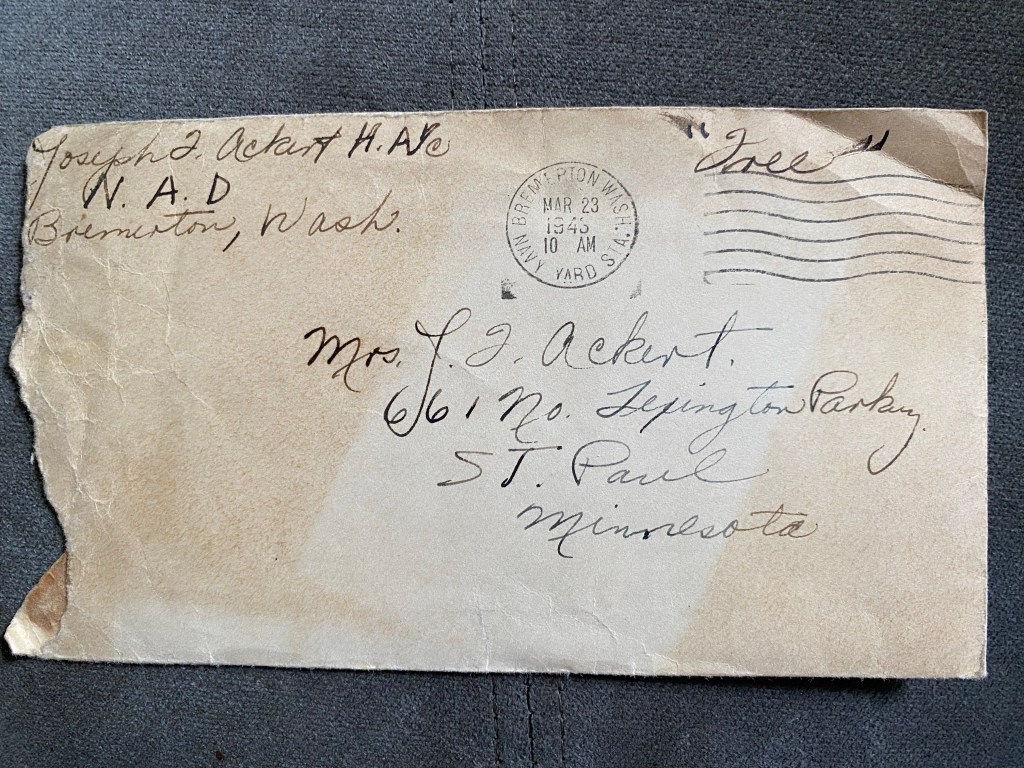 Joseph J. Ackert H.A.1/c
N. A. D
Bremerton, Wash.
"Free"
BREMERTON WASH.
MAR 23
10 AM
NAVY YARD STA.
Mrs. J. J. Ackert.
661 No. Lexington Parkwy.
ST. Paul
Minnesota